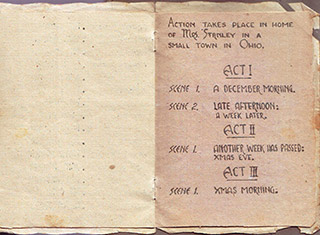 ACTION TAKES PLACE IN HOME
OF MRS. STANLEY IN A
SMALL TOWN IN OHIO.
ACT I
SCENE 1. A DECEMBER MORNING.
SCENE 2. LATE AFTERNOON:
A WEEK LATER.
ACT II
SCENE 1. ANOTHER WEEK HAS PASSED:
XMAS EVE.
ACT III
SCENE 1. XMAS MORNING.